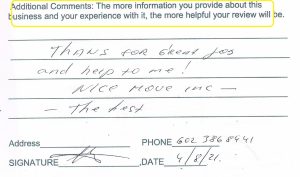 Additional Comments: The more information you provide about this
business and your experience with it, the more helpful your review will be.
Thanks for Great Job
and help to me!
Nice Move inc —
— The best
Address
PHONE 602 386 8441
SIGNATURE
DATE 4/8/21.